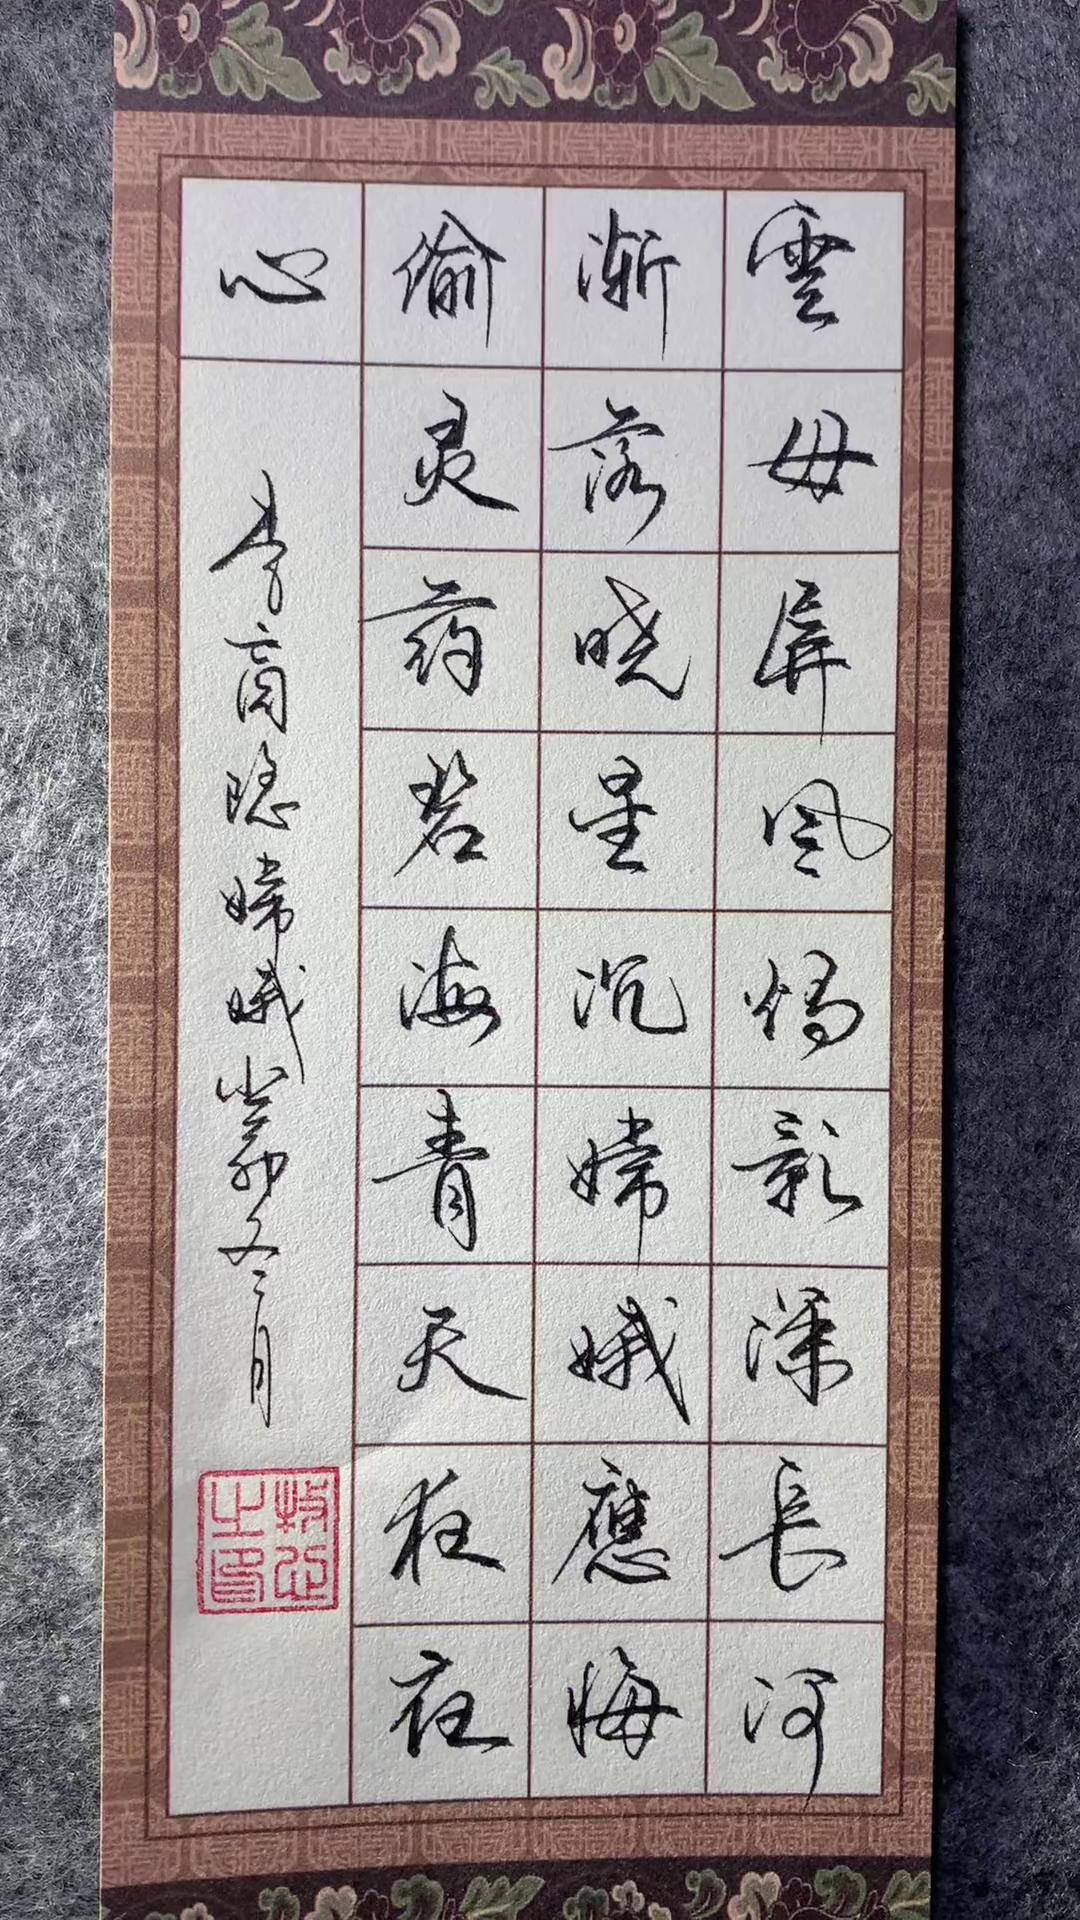 雲母屏风烛影深长河
渐落晓星沉嫦娥應悔
偷灵药碧海青天夜夜
心
李商隐嫦娥癸卯冬月